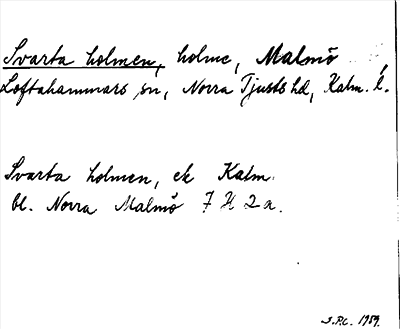 Svarta holmen, holme, Malmö
Loftahammars sn, Norra Tjusts hd, Kalm. l.
Svarta holmen, ek Kalm.
bl. Norra Malmö 7 H 2 a.
S.P.C. 1959.